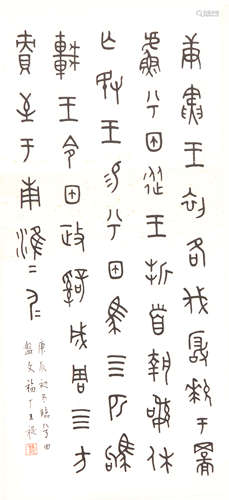 庚寅王初各伐玁狁于䣙
䖒兮甲從王折首執訊休
亡敃王易兮甲馬四匹駒
車王令甲政𤔲成周四方
責至于南淮二尸
庚辰初冬臨兮田
盤文福厂王禔